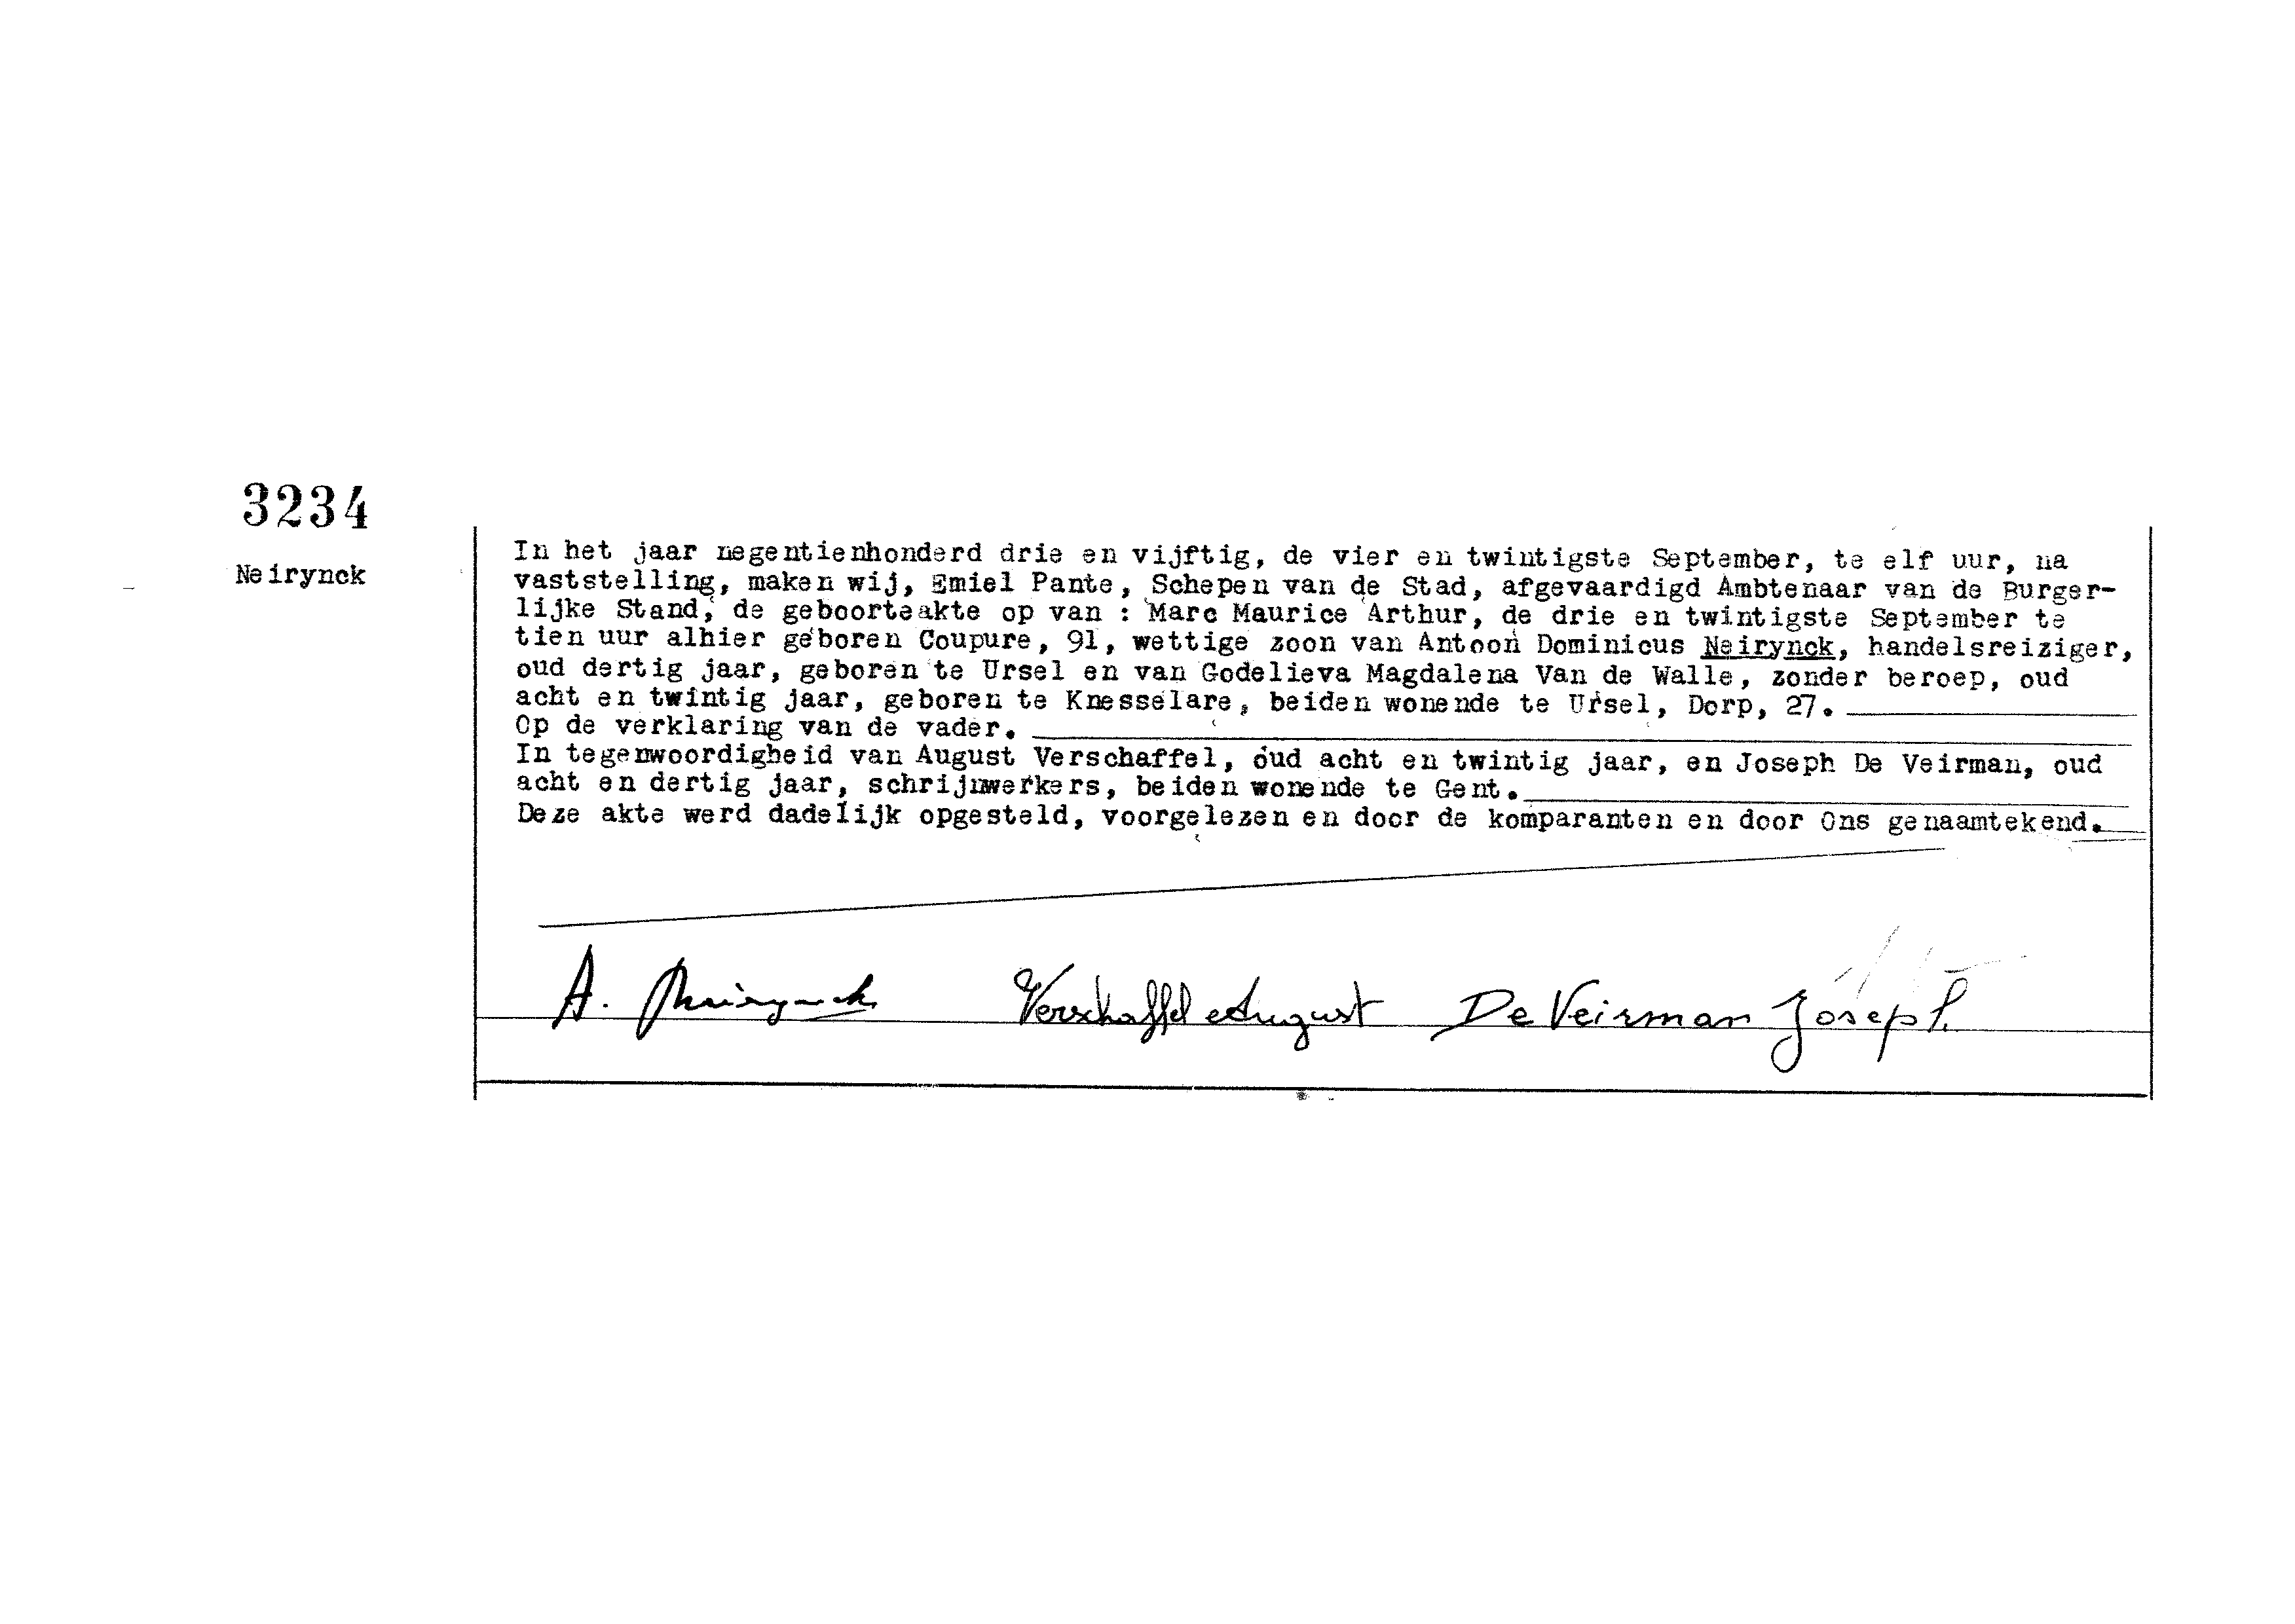 3234
Neirynck
In het jaar negentienhonderd drie en vijftig, de vier en twintigste September, te elf uur, na
vaststelling, maken wij, Emiel Pante, Schepen van de Stad, afgevaardigd Ambtenaar van de Burger-
lijke Stand, de geboorteakte op van : Marc Maurice Arthur, de drie en twintigste September te
tien uur alhier geboren Coupure, 91, wettige zoon van Antoon Dominicus Neirynck, handelsreiziger,
oud dertig jaar, geboren te Ursel en van Godelieva Magdalena Van de Walle, zonder beroep, oud
acht en twintig jaar, geboren te Knesselare, beiden wonende te Ursel, Dorp, 27.
Op de verklaring van de vader.
In tegenwoordigheid van August Verschaffel, oud acht en twintig jaar, en Joseph De Veirman, oud
acht en dertig jaar, schrijnwerkers, beiden wonende te Gent.
Deze akte werd dadelijk opgesteld, voorgelezen en door de komparanten en door Ons genaamtekend.
A. Neirynck Verschaffel August De Veirman Joseph